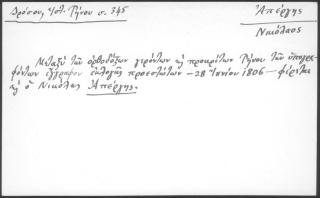 Δρόσου, Ἱστ. Τήνου σ. 345
Ἀπέργης
Νικόλαος
Μεταξὺ τῶν ὀρθοδόξων γερόντων κ προκρίτων Τήνου τῶν ὑπογρα-
φόντων ἔγγραφον ἐκλογῆς προεστώτων – 28 Ἰουνίου 1806 – φέρεται
κ ὁ Νικόλας Ἀπέργης.